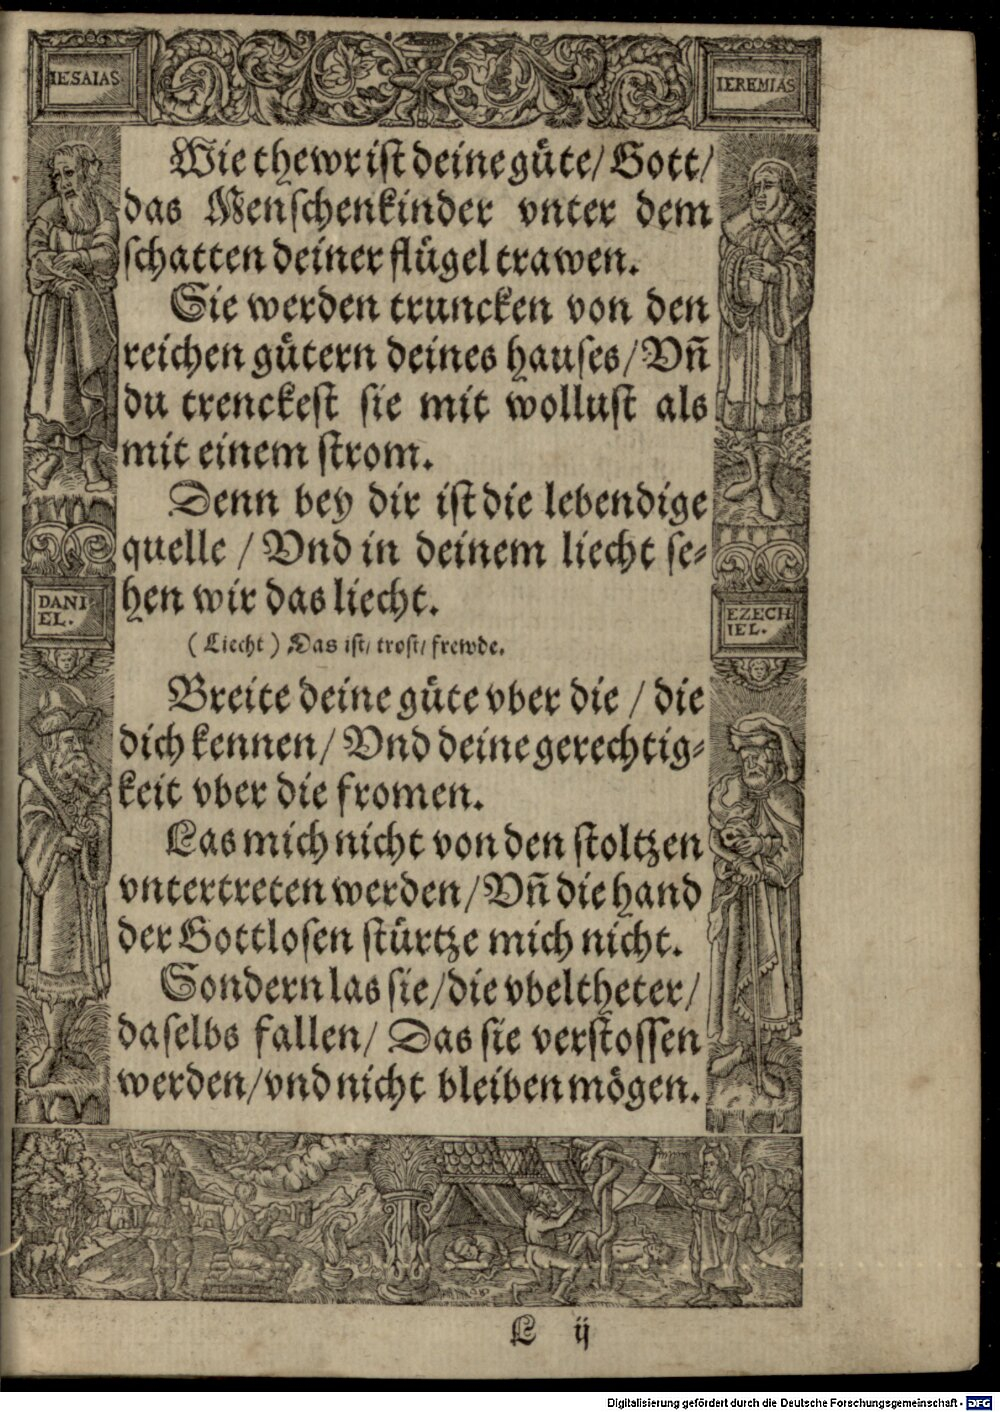 IESAIAS
IEREMIAS
Wie thewr ist deine güte/ Gott/
das Menschenkinder vnter dem
schatten deiner flügel trawen.
Sie werden truncken von den
reichen gütern deines hauses/ Vñ
du trenckest sie mit wollust als
mit einem strom.
Denn bey dir ist die lebendige
quelle / Vnd in deinem liecht se⸗
hen wir das liecht.
(Liecht) Das ist/ trost/ frewde.
Breite deine güte vber die / die
dich kennen/ Vnd deine gerechtig⸗
keit vber die fromen.
Las mich nicht von den stoltzen
vntertreten werden/ Vñ die hand
der Gottlosen stürtze mich nicht.
Sondern las sie/ die vbeltheter/
daselbs fallen/ Das sie verstossen
werden/ vnd nicht bleiben mögen.
DANI
EL.
EZECH
IEL.
L ij
Digitalisierung gefördert durch die Deutsche Forschungsgemeinschaft - DFG